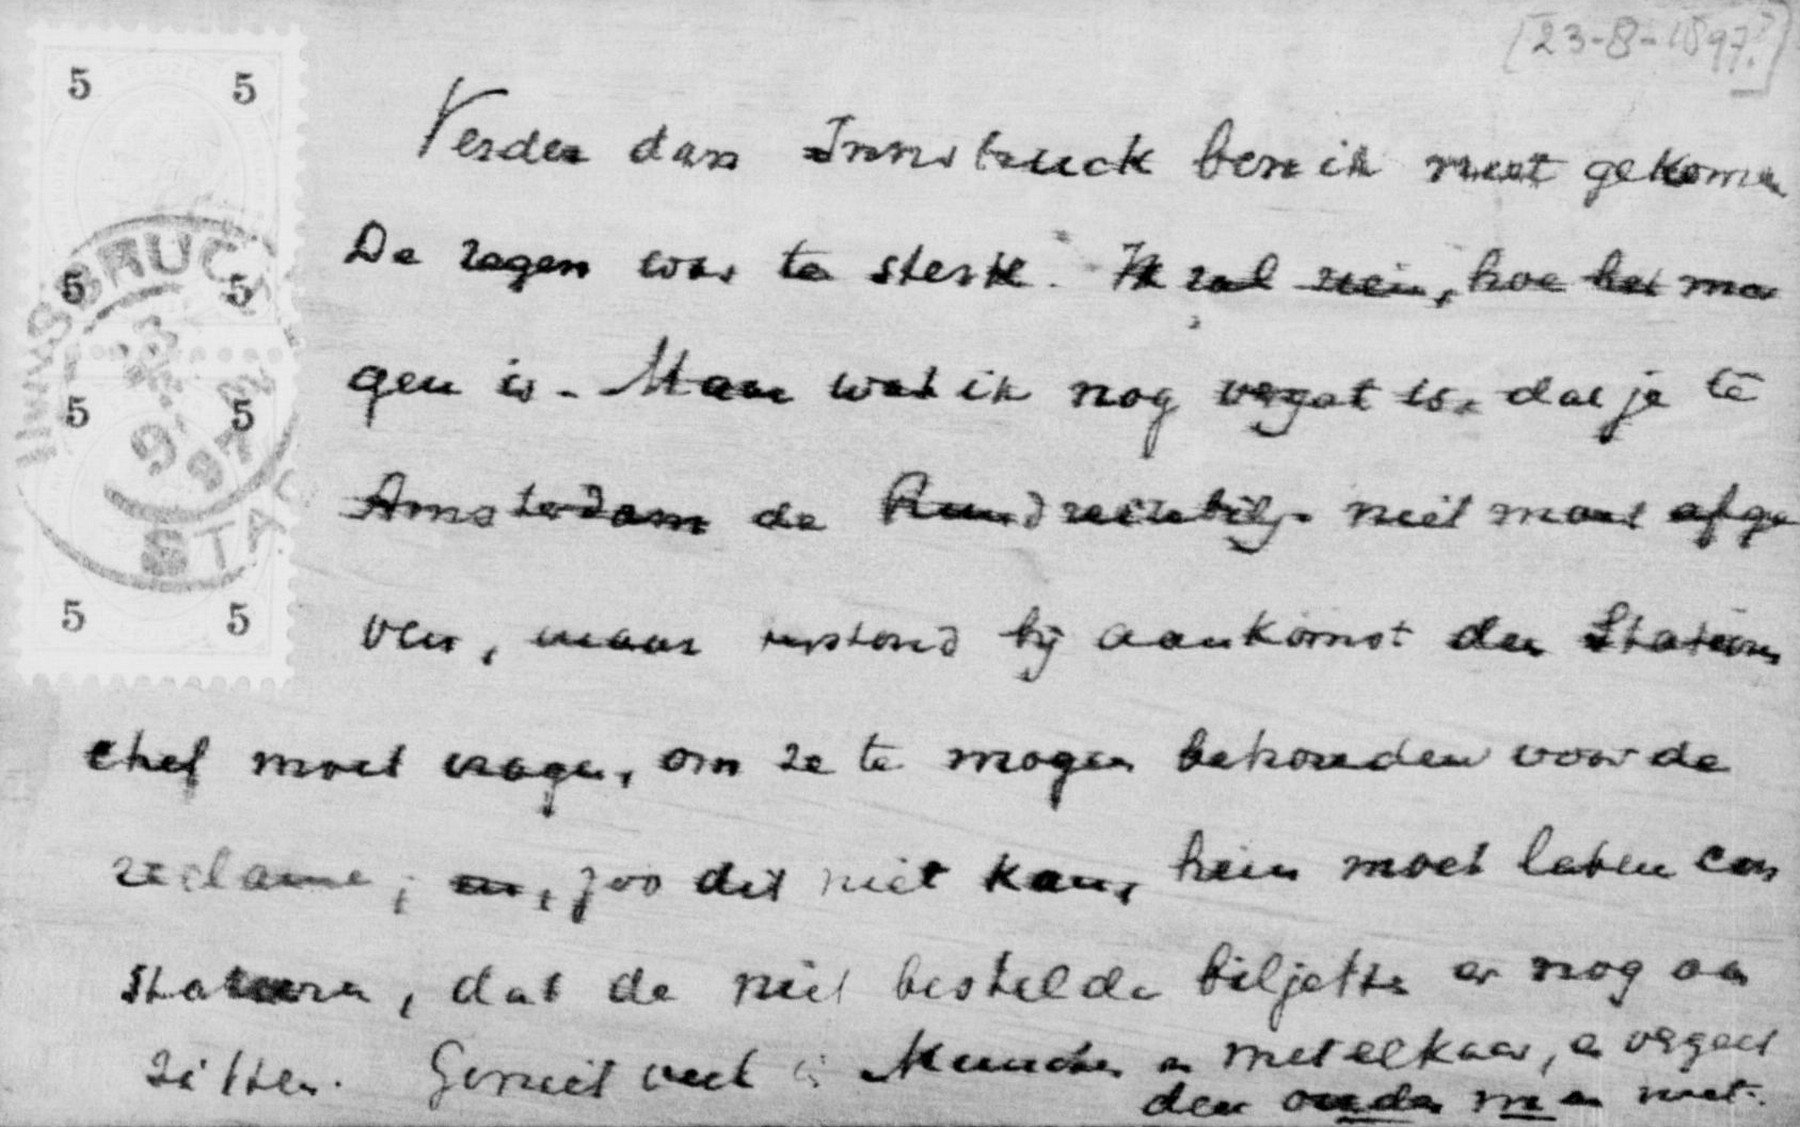 [23-8-1897?]
5 5
5 5
5 5
5 5
INNSBRUCK
STADT
97
Verder dan Innsbruck ben ik niet gekomen
De regen was te sterk. Ik zal zien, hoe het mor
gen is. Maar wat ik nog vergat is, dat je te
Amsterdam de Rundreisebilj. niet moet afge
ven, maar terstond bij aankomst den Stations
chef moet vragen, om ze te mogen behouden voor de
reclame; en, zoo dit niet kan, hem moet laten con
stateeren, dat de niet bestelde biljetten er nog aan
zitten. Geniet veel in München en met elkaar, en vergeet
den ouden man niet.